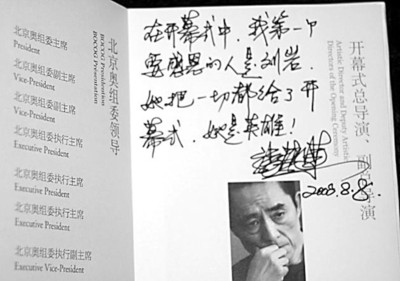 北京奥组委主席
President
北京奥组委副主席
Vice-President
北京奥组委副主席
Vice-President
北京奥组委执行主席
Executive President
北京奥组委执行主席
Executive President
北京奥组委执行主席
Executive President
北京奥组委执行副主席
Executive Vice-President
北京奥组委领导
BOCOG
BOCOG
在开幕式中,我第一个
要感恩的人是刘岩.
她把一切都给了开
幕式,她是英雄!
2008.8.8.
开幕式总导演、副总导演
Artistic Director and Deputy Artistic
Directors of the Opening Ceremony